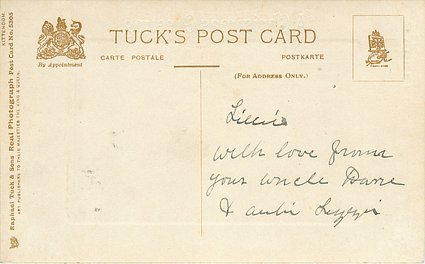 TUCK'S POST CARD
CARTE POSTALE
POSTKARTE
(FOR ADDRESS ONLY.)
By Appointment
Raphael Tuck & Sons Real Photograph Post Card No. 5305
ART PUBLISHERS TO THEIR MAJESTIES THE KING & QUEEN.
Lillie
with love from
your uncle
& auntie